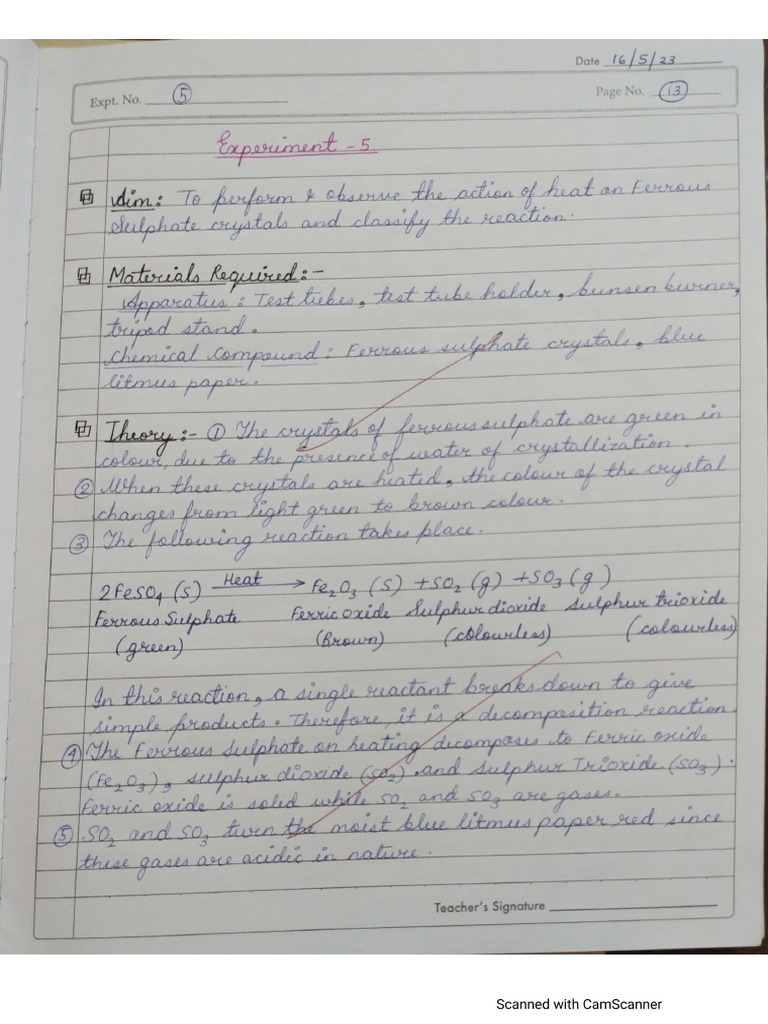 Date 16/5/23
Expt. No. 5
Page No. 13
Experiment - 5
Aim: To perform & observe the action of heat on Ferrous
Sulphate crystals and classify the reaction.
Materials Required:-
Apparatus: Test tubes, test tube holder, bunsen burner,
tripod stand.
Chemical Compound: Ferrous sulphate crystals, blue
litmus paper.
Theory:- ① The crystals of ferrous sulphate are green in
colour, due to the presence of water of crystallization.
② When these crystals are heated, the colour of the crystal
changes from light green to brown colour.
③ The following reaction takes place.
2FeSO₄ (s) Heat → Fe₂O₃ (s) + SO₂ (g) + SO₃ (g)
Ferrous Sulphate Ferric oxide Sulphur dioxide Sulphur trioxide
(green) (Brown) (colourless) (colourless)
In this reaction, a single reactant breaks down to give
simple products. Therefore, it is a decomposition reaction.
④ The Ferrous Sulphate on heating decomposes to Ferric oxide
(Fe₂O₃), sulphur dioxide (SO₂) and Sulphur Trioxide (SO₃).
Ferric oxide is solid while SO₂ and SO₃ are gases.
⑤ SO₂ and SO₃ turn the moist blue litmus paper red since
these gases are acidic in nature.
Teacher's Signature
Scanned with CamScanner